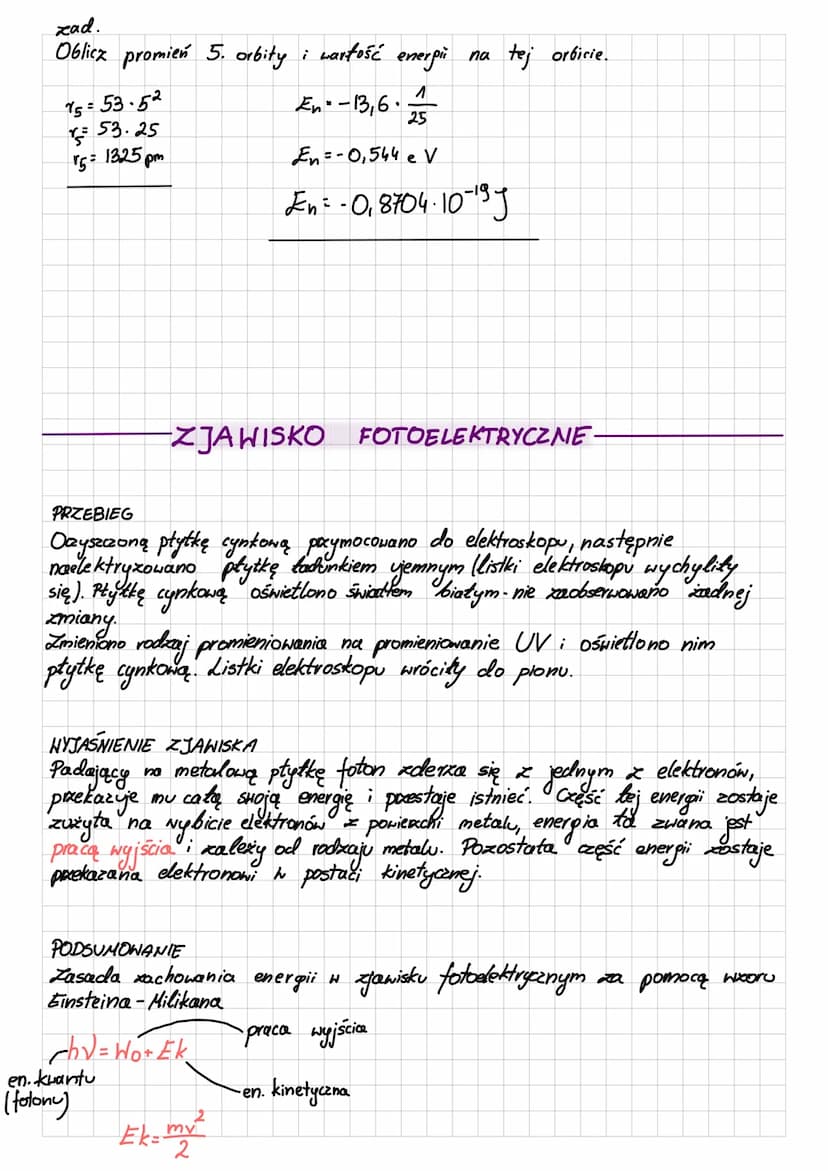 zad.
Oblicz promień 5. orbity i wartość energii na tej orbicie.
r₅ = 53 · 5²
r₅ = 53 · 25
r₅ = 1325 pm
En = -13,6 · 1/25
En = -0,544 eV
En = -0,8704 · 10⁻¹⁹ J
ZJAWISKO FOTOELEKTRYCZNE
PRZEBIEG
Oczyszczoną płytkę cynkową przymocowano do elektroskopu, następnie
naelektryzowano płytkę ładunkiem ujemnym (listki elektroskopu wychyliły
się). Płytkę cynkową oświetlono światłem białym - nie zaobserwowano żadnej
zmiany.
Zmieniono rodzaj promieniowania na promieniowanie UV i oświetlono nim
płytkę cynkową. Listki elektroskopu wróciły do pionu.
WYJAŚNIENIE ZJAWISKA
Padający na metalową płytkę foton zderza się z jednym z elektronów,
przekazuje mu całą swoją energię i przestaje istnieć. Część tej energii zostaje
zużyta na wybicie elektronów z powierzchi metalu, energia ta zwana jest
pracą wyjścia i zależy od rodzaju metalu. Pozostała część energii zostaje
przekazana elektronowi w postaci kinetycznej.
PODSUMOWANIE
Zasada zachowania energii w zjawisku fotoelektrycznym za pomocą wzoru
Einsteina - Milikana
praca wyjścia
hν = W₀ + Ek
en. kwantu
(fotonu)
en. kinetyczna
Ek = mv²/2